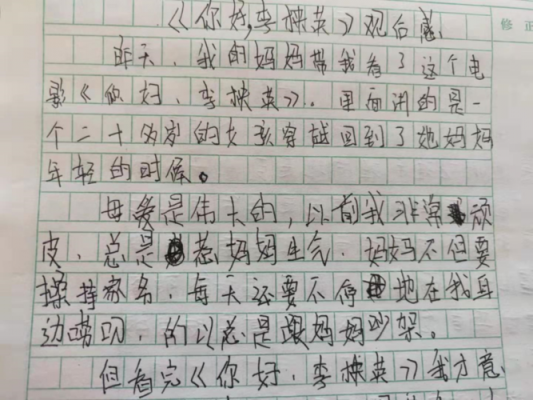 《你好,李换英》观后感
修正
昨天，我的妈妈带我看了这个电
影《你好，李换英》。里面讲的是一
个二十多岁的女孩穿越回到了她妈妈
年轻的时候。
母爱是伟大的，以前我非常顽
皮，总是惹妈妈生气，妈妈不但要
操持家务，每天还要不停地在我耳
边唠叨，的以总是跟妈妈吵架。
但看完《你好，李换英》我才意